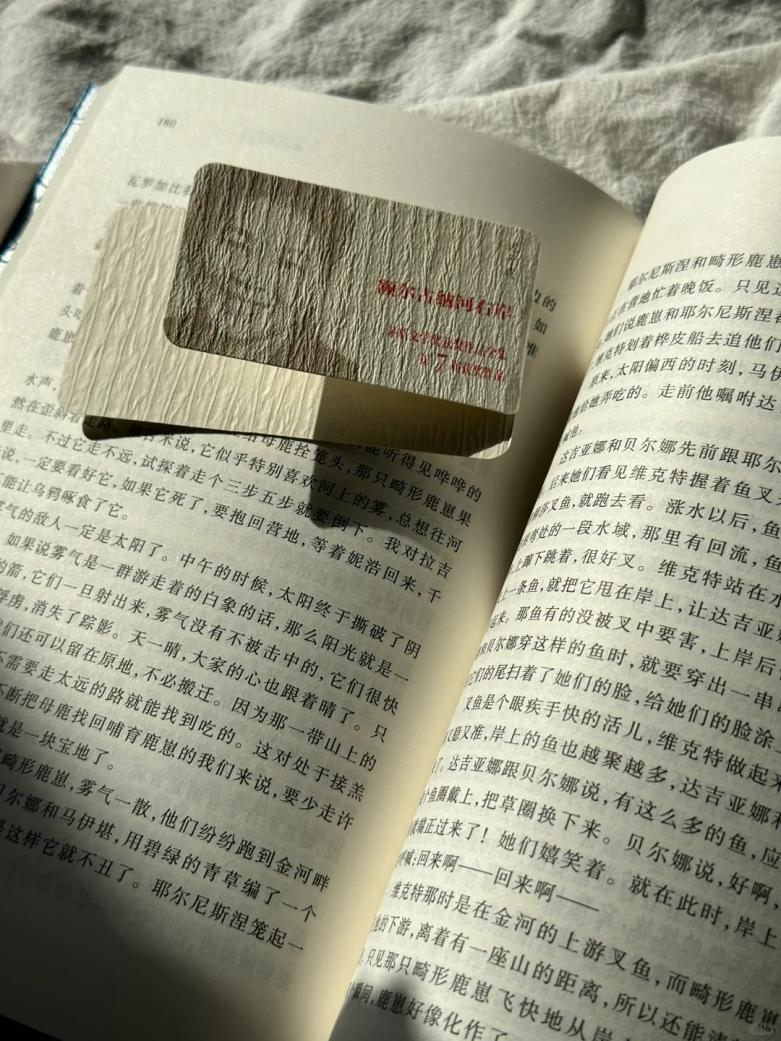 180
瓦罗加比
额尔古纳河右岸
茅盾文学奖获奖作品全集
第7届获奖作品
边的
如
推
水声。
能听得见哗哗的
然在歪斜着走路。
给母鹿拴笼头,那只畸形鹿崽果
里走。不过它走不远,试探着走个三步五步就要倒下。我对拉吉
来说,它似乎特别喜欢河上的雾,总想往河
说,一定要看好它,如果它死了,要抱回营地,等着妮浩回来,千
能让乌鸦啄食了它。
气的敌人一定是太阳了。中午的时候,太阳终于撕破了阴
如果说雾气是一群游走着的白象的话,那么阳光就是一
的箭,它们一旦射出来,雾气没有不被击中的,它们很快
浮虏,消失了踪影。天一晴,大家的心也跟着晴了。只
们还可以留在原地,不必搬迁。因为那一带山上的
不需要走太远的路就能找到吃的。这对处于接羔
不断把母鹿找回哺育鹿崽的我们来说,要少走许
就是一块宝地了。
畸形鹿崽,雾气一散,他们纷纷跑到金河畔
尔娜和马伊堪,用碧绿的青草编了一个
是这样它就不丑了。耶尔尼斯涅笼起一
耶尔尼斯涅和畸形鹿崽
不在营地忙着晚饭。只见达
她们说鹿崽和耶尔尼斯涅
维克特划着桦皮船去追他们
原来,太阳偏西的时刻,马伊
给他弄吃的。走前他嘱咐达
达吉亚娜和贝尔娜先前跟耶尔
后来她们看见维克特握着鱼叉
叉鱼,就跑去看。涨水以后,鱼
弯处的一段水域,那里有回流,鱼
上蹿下跳着,很好叉。维克特站在水
上一条鱼,就把它甩在岸上,让达吉亚娜
起来。那鱼有的没被叉中要害,上岸后
和贝尔娜穿这样的鱼时,就要穿出一串
它们的尾扫着了她们的脸,给她们的脸涂
叉鱼是个眼疾手快的活儿,维克特做起来
又稳又准,岸上的鱼也越聚越多,达吉亚娜和
了。达吉亚娜跟贝尔娜说,有这么多的鱼,应
个鱼圈戴上,把草圈换下来。贝尔娜说,好啊,
就端正过来了!她们嬉笑着。就在此时,岸上
呼喊:回来啊——回来啊——
维克特那时是在金河的上游叉鱼,而畸形鹿崽
他的下游,离着有一座山的距离,所以还能清
只见那只畸形鹿崽飞快地从岸
瞬间,鹿崽好像化作了